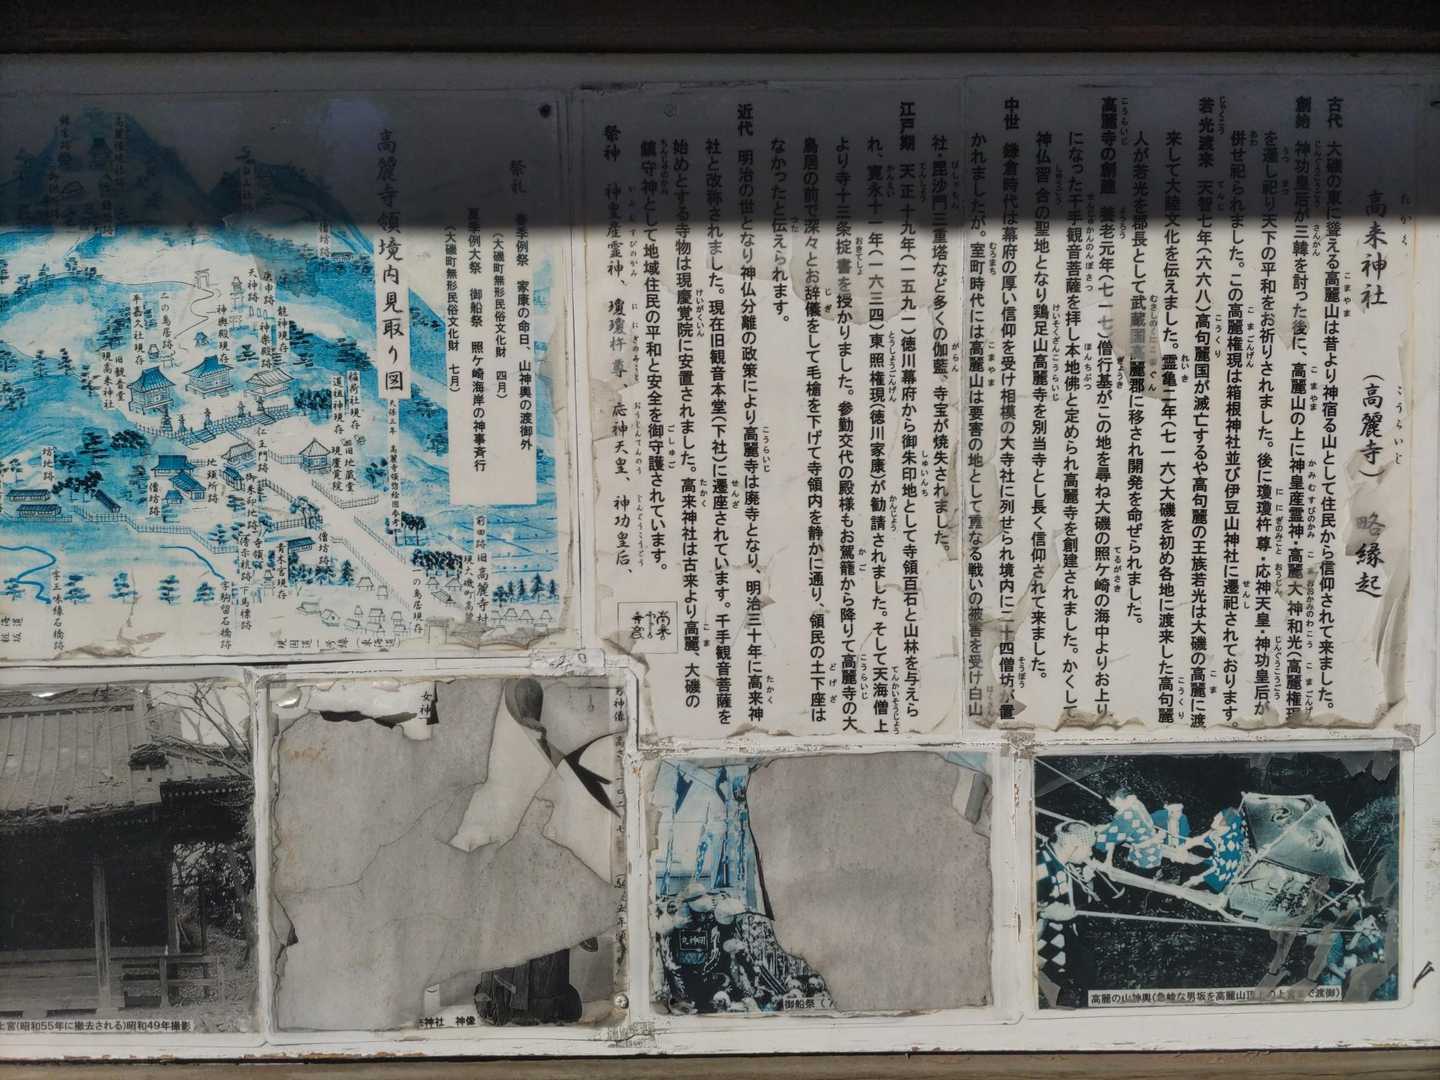 高来神社（高麗寺）略縁起
古代　大磯の東に聳える高麗山は昔より神宿る山として住民から信仰されて来ました。
創始　神功皇后が三韓を討った後に、高麗山の上に神皇産霊神・高麗大神和光（高麗権現）
を遷し祀り天下の平和をお祈りされました。後に瓊瓊杵尊・応神天皇・神功皇后が
併せ祀られました。この高麗権現は箱根神社並び伊豆山神社に遷祀されております。
若光渡来　天智七年（六六八）高句麗国が滅亡するや高句麗の王族若光は大磯の高麗に渡
来して大陸文化を伝えました。霊亀二年（七一六）大磯を初め各地に渡来した高句麗
人が若光を郡長として武蔵国高麗郡に移され開発を命ぜられました。
高麗寺の創建　養老元年（七一七）僧行基がこの地を尋ね大磯の照ケ崎の海中よりお上り
になった千手観音菩薩を拝し本地佛と定められ高麗寺を創建されました。かくして
神仏習合の聖地となり鶏足山高麗寺を別当寺とし長く信仰されて来ました。
中世　鎌倉時代は幕府の厚い信仰を受け相模の大寺社に列せられ境内に二十四僧坊が置
かれましたが。室町時代には高麗山は要害の地として重なる戦いの被害を受け白山
社・毘沙門三重塔など多くの伽藍、寺宝が焼失されました。
江戸期　天正十九年（一五九一）徳川幕府から御朱印地として寺領百石と山林を与えら
れ、寛永十一年（一六三四）東照権現（徳川家康）が勧請されました。そして天海僧上
より寺十三条掟書を授かりました。参勤交代の殿様もお駕籠から降りて高麗寺の大
鳥居の前で深々とお辞儀をして毛槍を下げて寺領内を静かに通り、領民の土下座は
なかったと伝えられます。
近代　明治の世となり神仏分離の政策により高麗寺は廃寺となり、明治三十年に高来神
社と改称されました。現在旧観音本堂（下社）に遷座されています。千手観音菩薩を
始めとする寺物は現慶覚院に安置されました。高来神社は古来より高麗、大磯の
鎮守神として地域住民の平和と安全を御守護されています。
祭神　神皇産霊神、瓊瓊杵尊、応神天皇、神功皇后、
祭礼　春季例祭　家康の命日、山神輿の渡御外
（大磯町無形民俗文化財　四月）
夏季例大祭　御船祭　照ケ崎海岸の神事斉行
（大磯町無形民俗文化財　七月）
高麗寺領境内見取り図
天神跡
庚申跡
龍神現存
神楽殿現存
神輿殿現存
二の鳥居跡
平嘉久社現存
旧観音堂
現高来神社
稲荷社現存
道祖神現存
仁王門跡
旧地蔵堂
現慶覚院
地頭所跡
僧坊跡
坊地跡
僧坊跡
下馬標跡
高麗寺村
女神
高麗の山神輿（急峻な男坂を高麗山頂上の上宮まで渡御）
御船祭（7
神社　神像
上宮（昭和55年に撤去される）昭和49年撮影